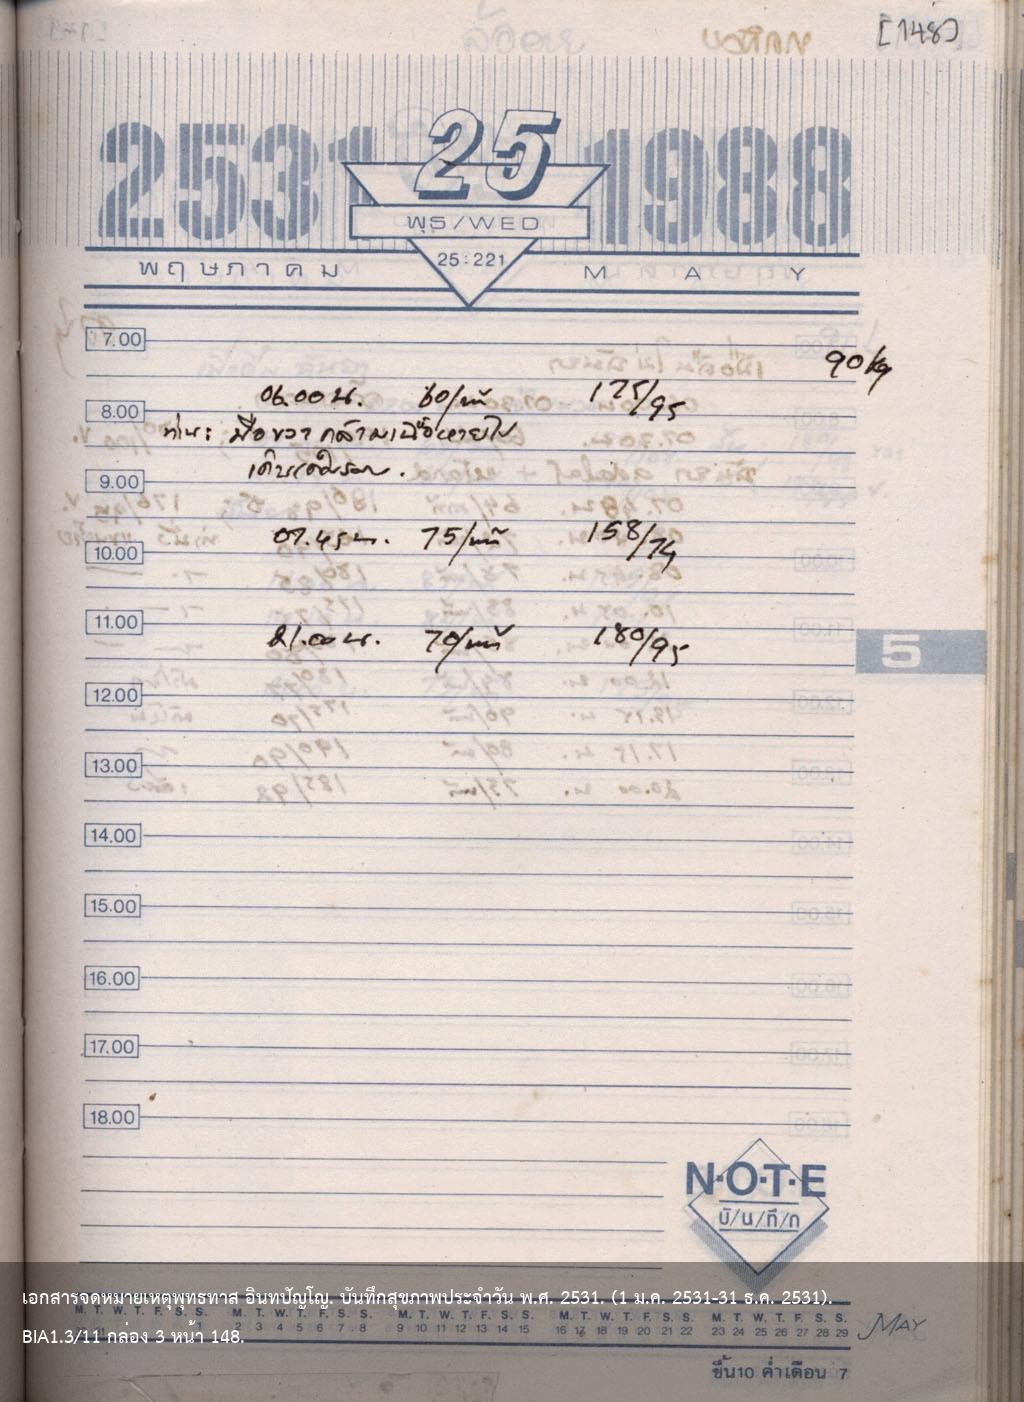 [148]
2531
25
1988
พุธ/WED
25:221
พฤษภาคม
MAY
7.00
90 kg
06.00 น. 60/นาที 175/95
8.00
ท่าน: มือขวา กล้ามเนื้อหายไป
9.00
07.45 น. 75/นาที 158/74
10.00
11.00
21.00 น. 70/นาที 180/95
5
12.00
13.00
14.00
15.00
16.00
17.00
18.00
N·O·T·E
บั/น/ทึ/ก
เอกสารจดหมายเหตุพุทธทาส อินทปัญโญ. บันทึกสุขภาพประจำวัน พ.ศ. 2531. (1 ม.ค. 2531-31 ธ.ค. 2531).
M. T. W. T. F. S. S. M. T. W. T. F. S. S. M. T. W. T. F. S. S. M. T. W. T. F. S. S. M. T. W. T. F. S. S.
1 2 3 4 5 6 7 8 9 10 11 12 13 14 15 16 17 18 19 20 21 22 23 24 25 26 27 28 29
MAY
BIA1.3/11 กล่อง 3 หน้า 148.
ขึ้น10 ค่ำเดือน 7